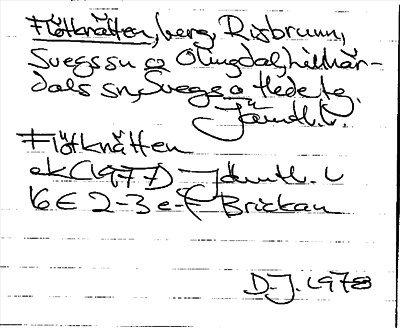 Flötknätten, berg, Risbrunn,
Svegs sn o Olingdal, Lillhär-
dals sn, Svegs o Hede tg.
Jämtl. l.
Flötknätten
ek (1977) Jämtl. L
16E 2-3 e-f Brickan
D.J. 1978